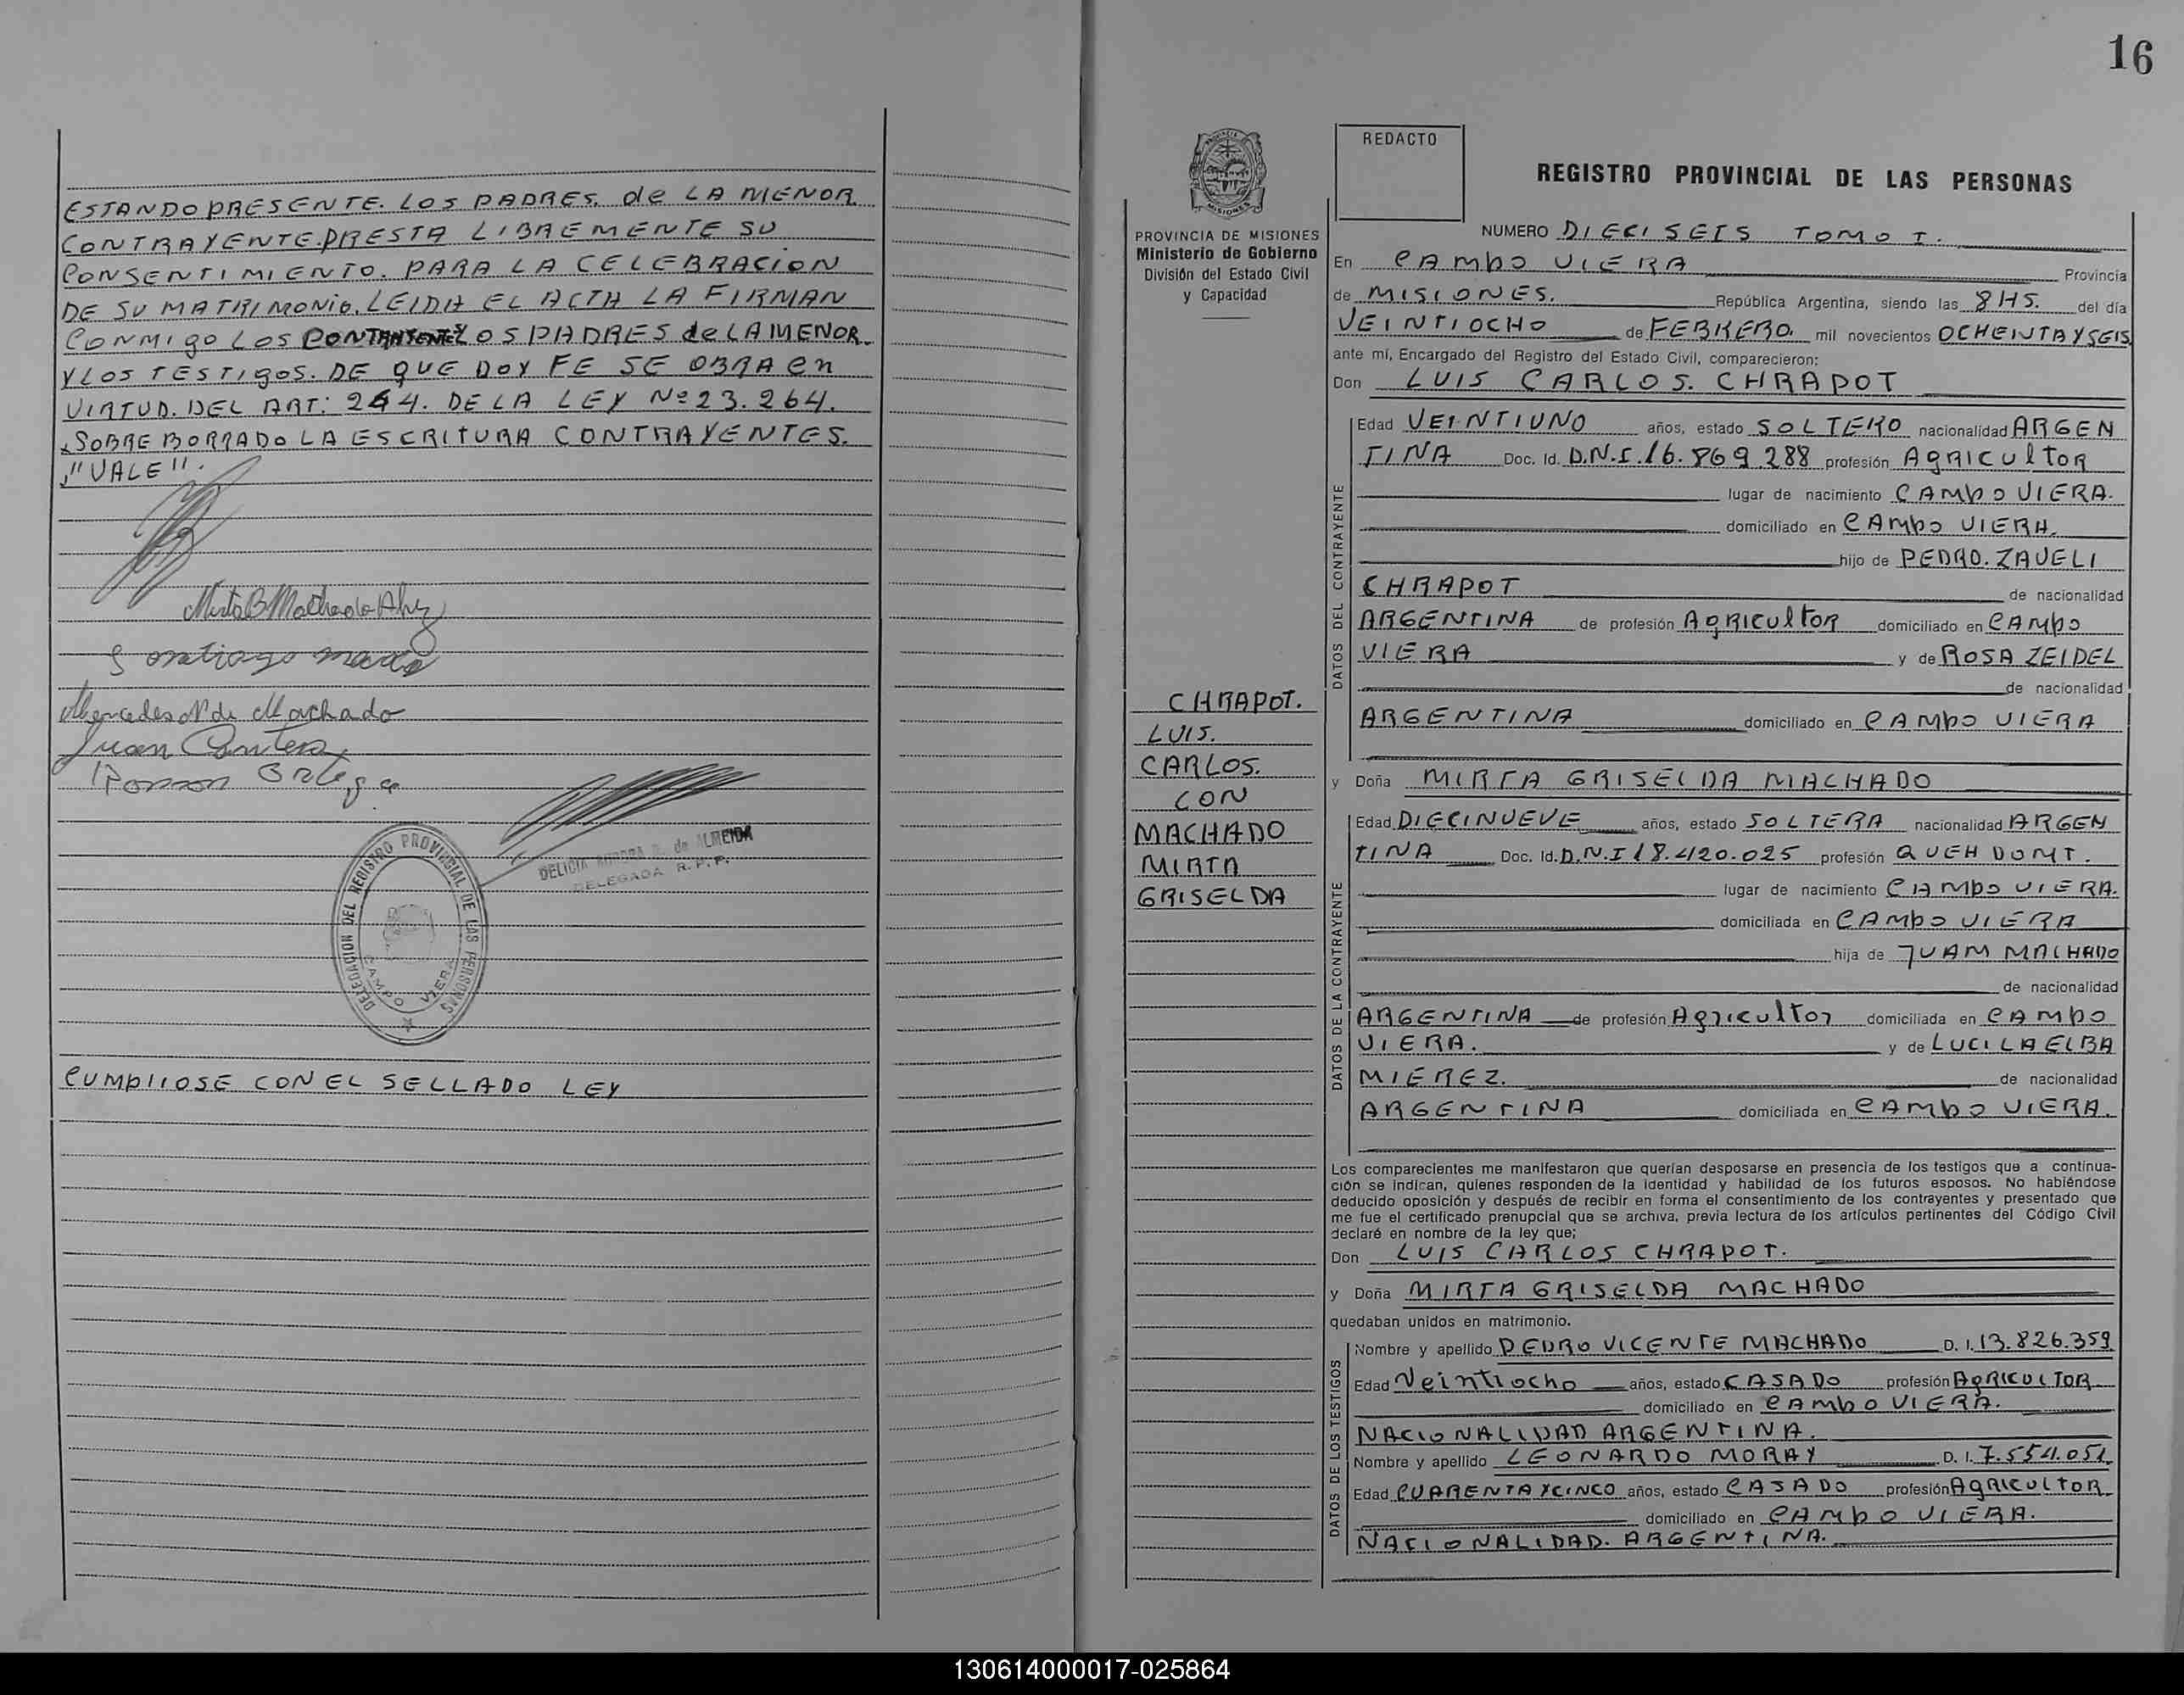 ESTANDO PRESENTE. LOS PADRES. de LA MENOR
CONTRAYENTE. PRESTA LIBREMENTE SU
CONSENTIMIENTO. PARA LA CELEBRACION
DE SU MATRIMONIO. LEIDA EL ACTA LA FIRMAN
CONMIGO LOS CONTRAYENTE Y LOS PADRES de LA MENOR.
Y LOS TESTIGOS. DE QUE DOY FE SE OBRA en
VIRTUD. DEL ART: 264. DE LA LEY Nº 23.264.
SOBRE BORRADO LA ESCRITURA CONTRAYENTES.
"VALE".
Mercedes N de Machado
Juan
Ramon Ortega
DELICIA AURORA de ALMEIDA
DELEGADA R.P.P.
DELEGACION DEL REGISTRO PROVINCIAL DE LAS PERSONAS
CAMPO VIERA
CUMPLIOSE CON EL SELLADO LEY
16
PROVINCIA DE MISIONES
Ministerio de Gobierno
División del Estado Civil
y Capacidad
CHRAPOT.
LUIS.
CARLOS.
CON
MACHADO
MIRTA
GRISELDA
REDACTO
REGISTRO PROVINCIAL DE LAS PERSONAS
NUMERO DIECISEIS TOMO I.
En CAMPO VIERA Provincia
de MISIONES. República Argentina, siendo las 8 HS. del día
VEINTIOCHO de FEBRERO. mil novecientos OCHENTA Y SEIS
ante mí, Encargado del Registro del Estado Civil, comparecieron:
Don LUIS CARLOS. CHRAPOT
DATOS DEL CONTRAYENTE
Edad VEINTIUNO años, estado SOLTERO nacionalidad ARGEN
TINA Doc. Id. D.N.I. 16.869.288 profesión AgRICUlTOR
lugar de nacimiento CAMPO VIERA.
domiciliado en CAMPO VIERA.
hijo de PEDRO. ZAVELI
CHRAPOT de nacionalidad
ARGENTINA de profesión AgRICUlTOR domiciliado en CAMPO
VIERA y de ROSA ZEIDEL
de nacionalidad
ARGENTINA domiciliado en CAMPO VIERA
y Doña MIRTA GRISELDA MACHADO
DATOS DE LA CONTRAYENTE
Edad DIECINUEVE años, estado SOLTERA nacionalidad ARGEN
TINA Doc. Id. D.N.I 18.420.025 profesión QUEH DOMT.
lugar de nacimiento CAMPO VIERA.
domiciliada en CAMPO VIERA
hija de JUAM MACHADO
de nacionalidad
ARGENTINA de profesión Agricultor domiciliada en CAMPO
VIERA. y de LUCILA ELBA
MIEREZ. de nacionalidad
ARGENTINA domiciliada en CAMPO VIERA.
Los comparecientes me manifestaron que querían desposarse en presencia de los testigos que a continua-
ción se indican, quienes responden de la identidad y habilidad de los futuros esposos. No habiéndose
deducido oposición y después de recibir en forma el consentimiento de los contrayentes y presentado que
me fue el certificado prenupcial que se archiva, previa lectura de los artículos pertinentes del Código Civil
declaré en nombre de la ley que;
Don LUIS CARLOS CHRAPOT.
y Doña MIRTA GRISELDA MACHADO
quedaban unidos en matrimonio.
DATOS DE LOS TESTIGOS
Nombre y apellido PEDRO VICENTE MACHADO D. I. 13.826.359
Edad Veintiocho años, estado CASADO profesión AgRICULTOR
domiciliado en CAMPO VIERA.
NACIONALIDAD ARGENTINA.
Nombre y apellido LEONARDO MORAY D. I. 7.554.051
Edad CUARENTA Y CINCO años, estado CASADO profesión AgRICULTOR
domiciliado en CAMPO VIERA.
NACIONALIDAD. ARGENTINA.
130614000017-025864